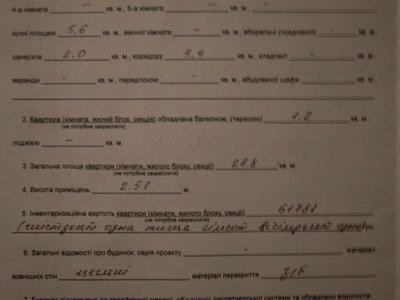 4-а кімната – кв. м., 5-а кімната – кв. м.,
кухні площею 5,6 кв. м., ванної кімнати – кв. м., вбиральні (поєднаної) кв. м.,
санвузла 2,0 кв. м., коридору 3,4 кв. м., кладової – кв. м.,
веранди – кв. м., передпокою – кв. м., вбудованої шафи кв. м.,
2. Квартира (кімната, жилий блок, секція) обладнана балконом, (терасою) 1,2 кв. м.,
(не потрібне закреслити)
лоджією – кв. м.
3. Загальна площа квартири (кімнати, жилого блоку, секції) 28.8 кв. м.
(не потрібне закреслити)
4. Висота приміщень 2.51 м.
5. Інвентаризаційна вартість квартири (кімнати, жилого блоку, секції) 61781
(не потрібне закреслити)
(шістдесят одна тисяча сімсот вісімдесят одна) грн
6. Загальні відомості про будинок: серія проекту – матеріал
зовнішніх стін цегляні матеріал перекриття з/б